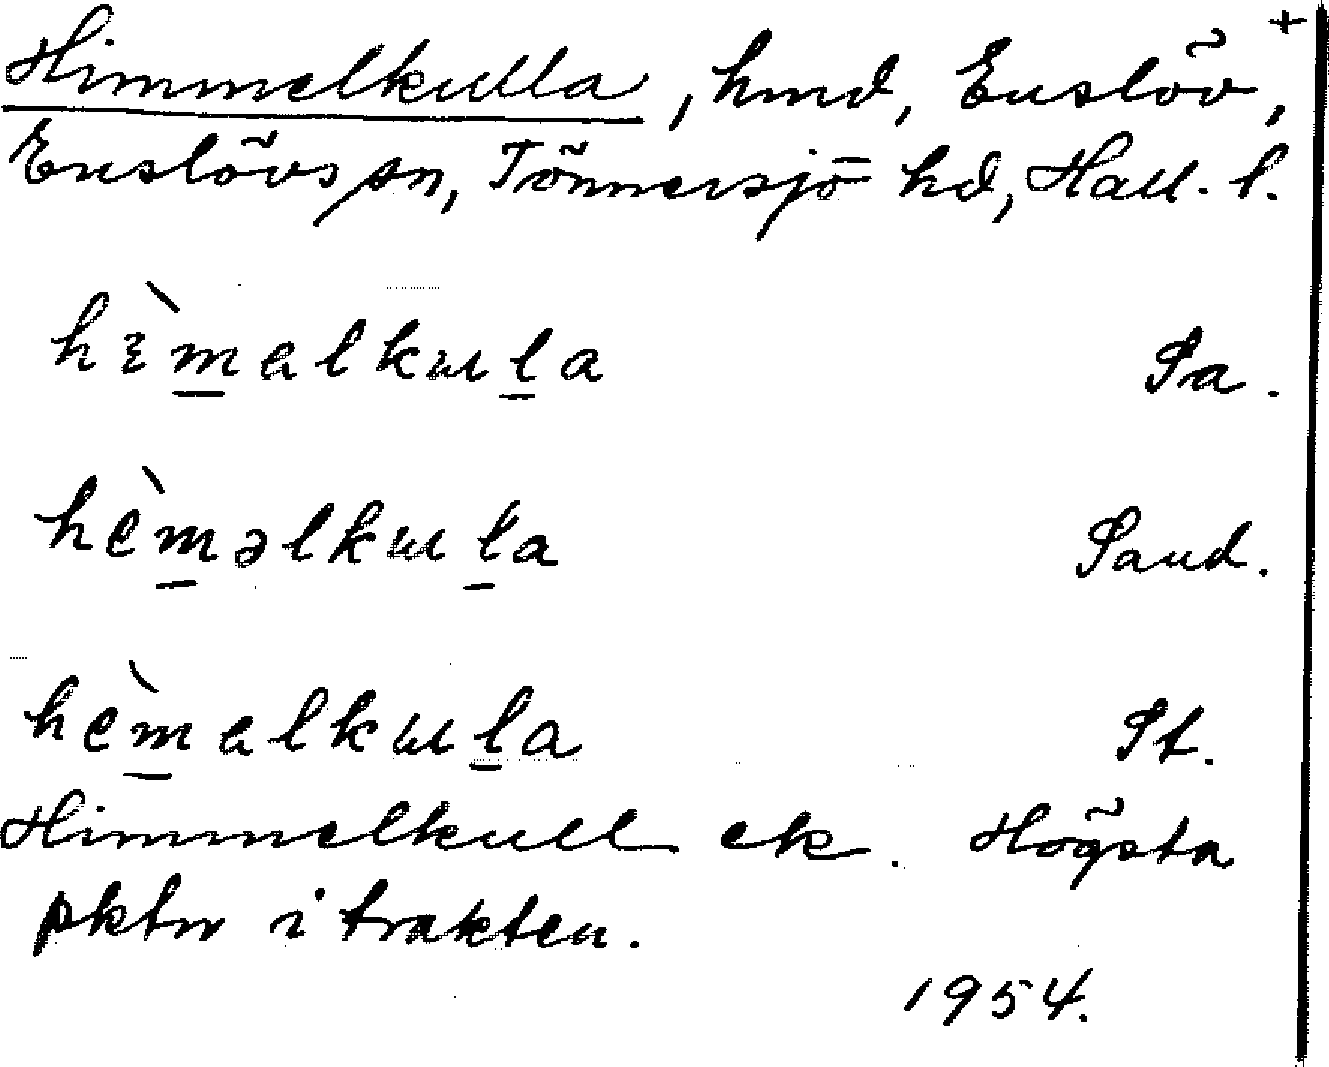 +
Himmelkulla, hmd, Enslöv,
Enslövs sn, Tönnersjö hd, Hall. l.
hɛ̀m̲alkul̲a Sa.
hèm̲əlkul̲a Sand.
hèm̲alkul̲a St.
Himmelkull ek. Högsta
pktn i trakten.
1954.